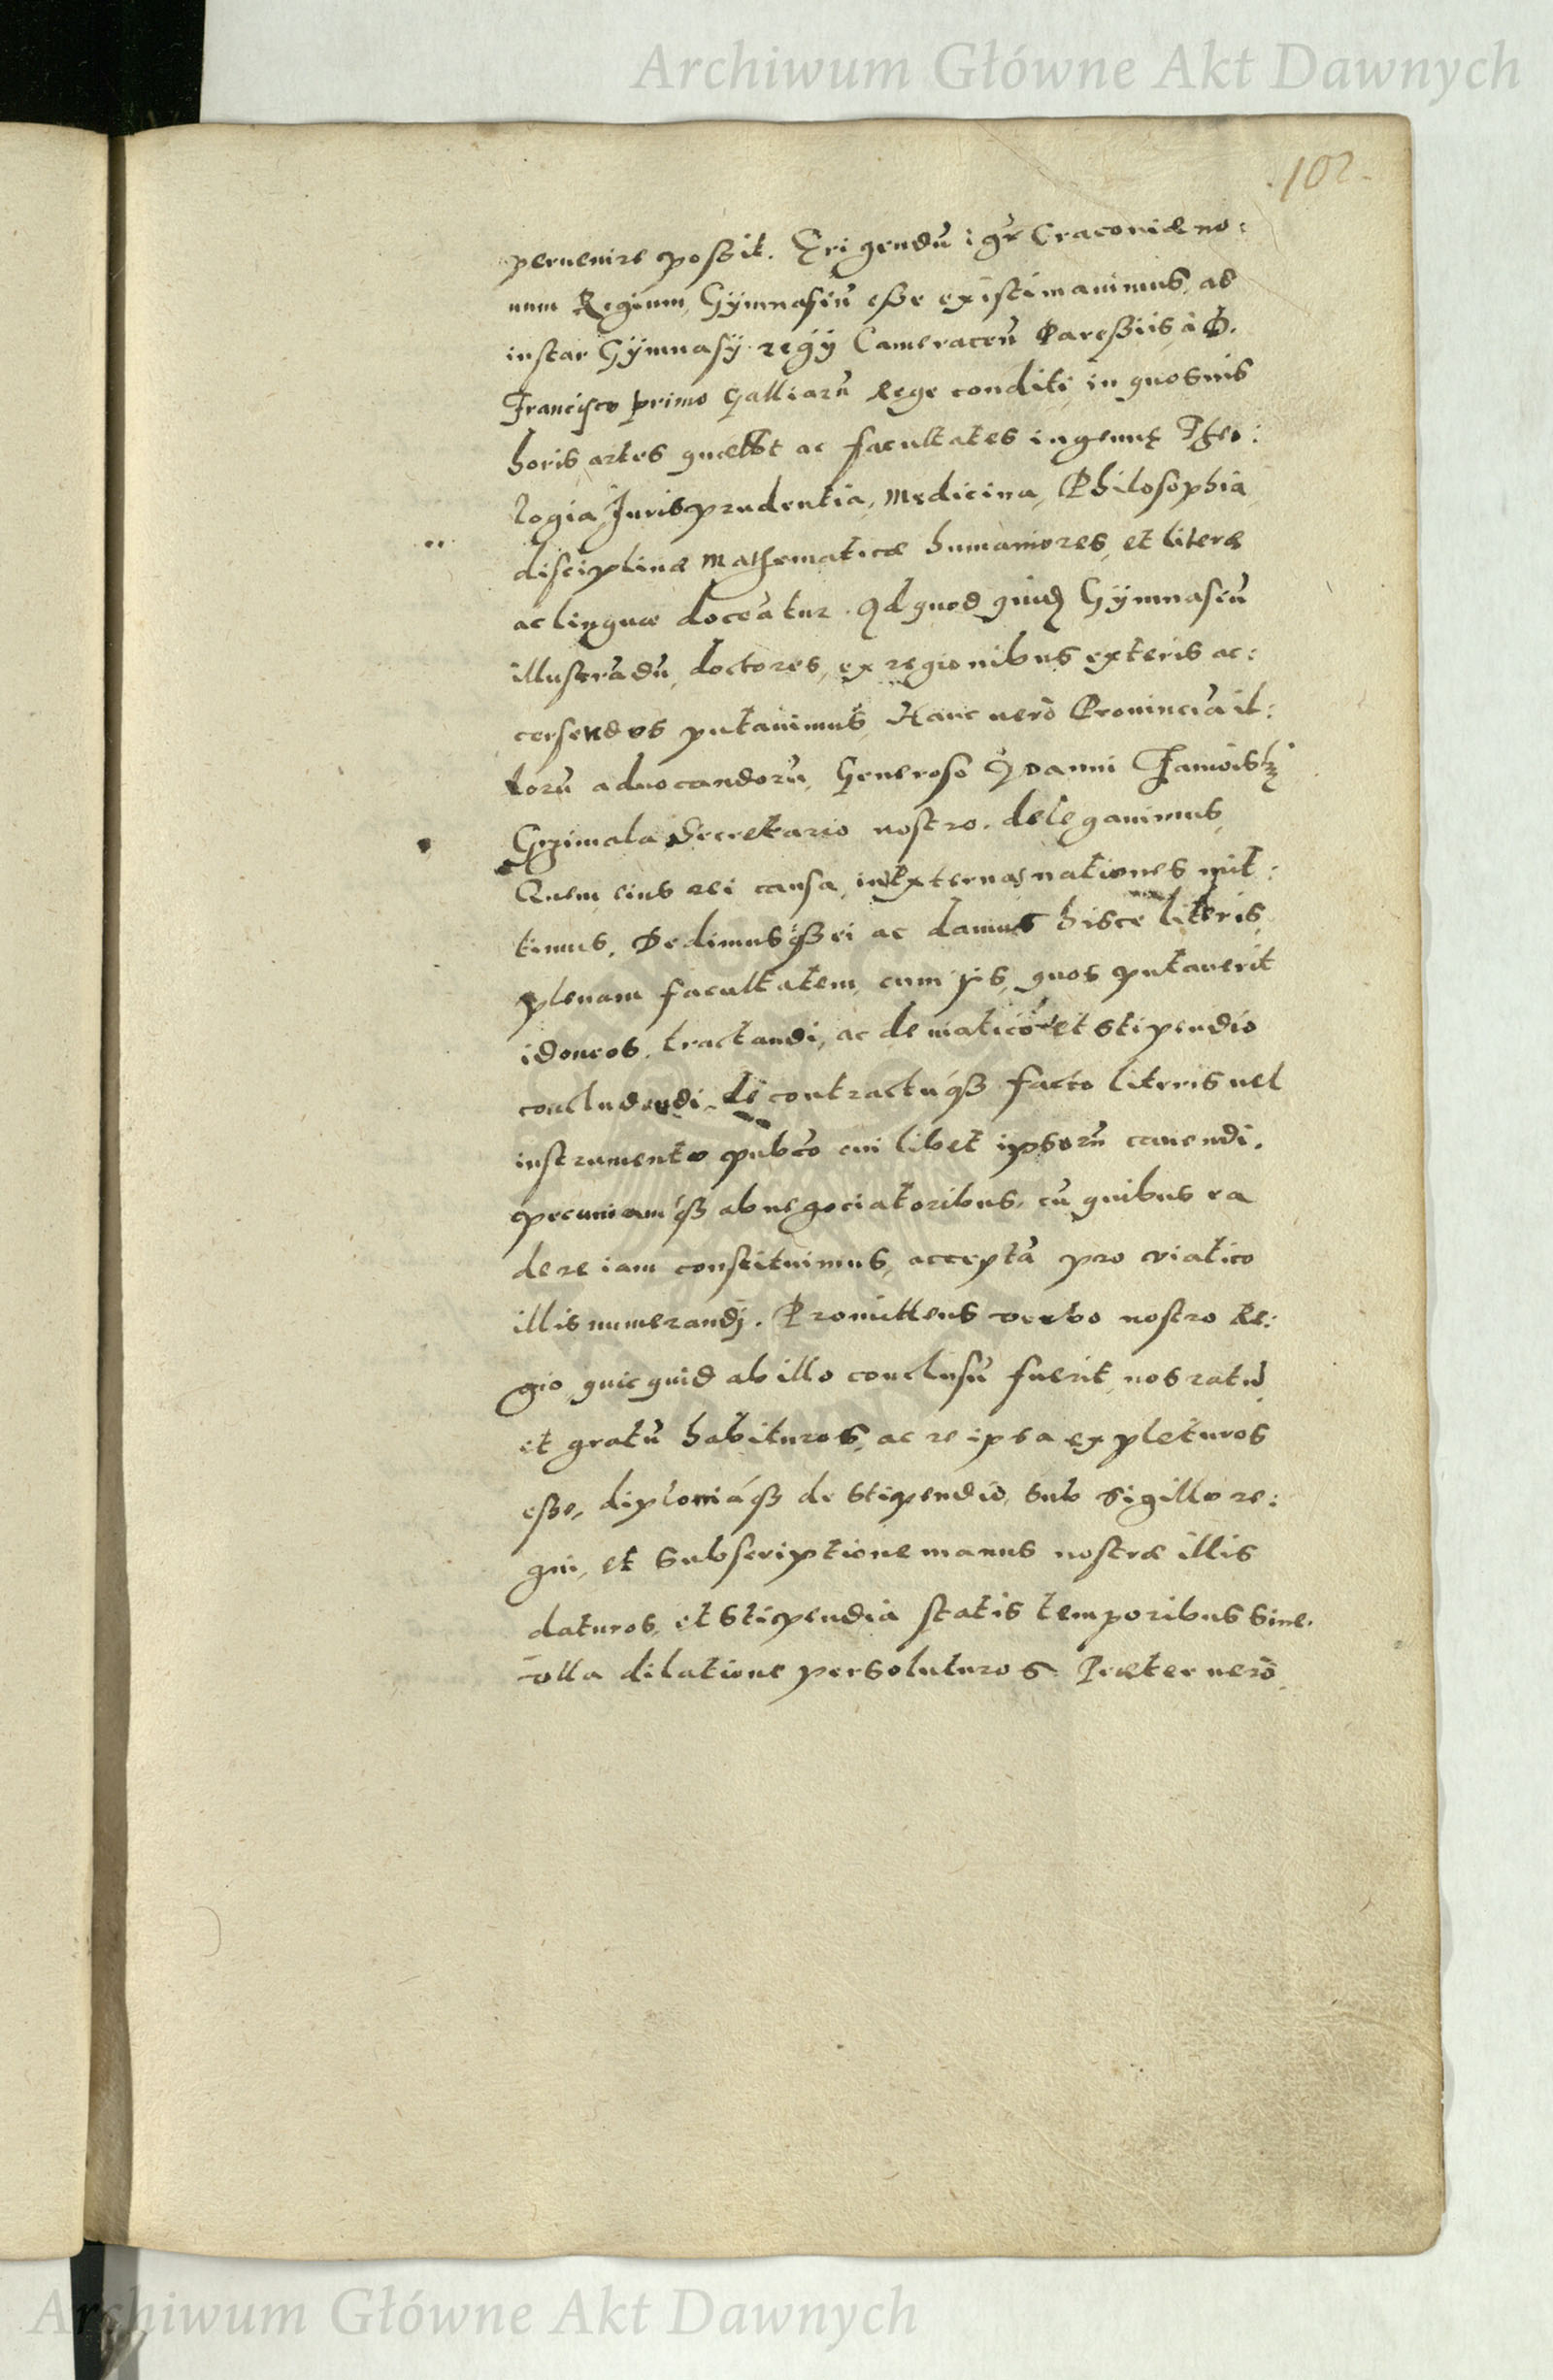 Archiwum Główne Akt Dawnych
.102.
pervenire possit. Erigendũ igr̃ Cracoviæ no:
uum Regium, Gÿmnasiũ esße existimavimus, ad
instar Gÿmnasÿ regÿ Cameraceñ Pareßiis, à D.
Francisco primo Galliarũ Rege conditi, in quo suis
horis artes ac facultates ingenuę Theo:
logia, Jurisprudentia, Medicina, Philosophia
disciplinæ Mathematicæ humaniores, et literæ
ac linguæ doceãtur. Ad quod quidẽ Gÿmnasiũ
illustrãdũ, doctores, ex regionibus exteris ac:
cersendos putavimus, Hanc uerò Provinciã il:
lorũ aduocandorũ, Generoso Joanni
Grzimala Secretario nostro. delegavimus,
Quem, eius rei causa, in externas nationes mit:
timus. Dedimusq́ꝫ ei ac damus hisce literis,
plenam facultatem, cum ÿs, quos putaverit
idoneos, tractandi, ac de viatico et stipendio
concludendi, de contractúqꝫ facto literis uel
instrumento pub̃co cui libet ipsorũ cavendi.
pecuniam q́ꝫ ab negociatoribus, cũ quibus ea
de re iam constituimus, acceptã pro viatico
illis numerandj. Promittens verbo nostro Re:
gio quicquid ab illo conclusũ fuerit, nos ratũ
et gratũ habituros, ac re ipsa expleturos
esße, diplomáqꝫ de stipendio, sub sigillo re:
gni, et subscriptione manus nostræ illis
daturos, et stipendia statis temporibus sine.
vlla dilatione persoluturos. Præter uerò
Archiwum Główne Akt Dawnych